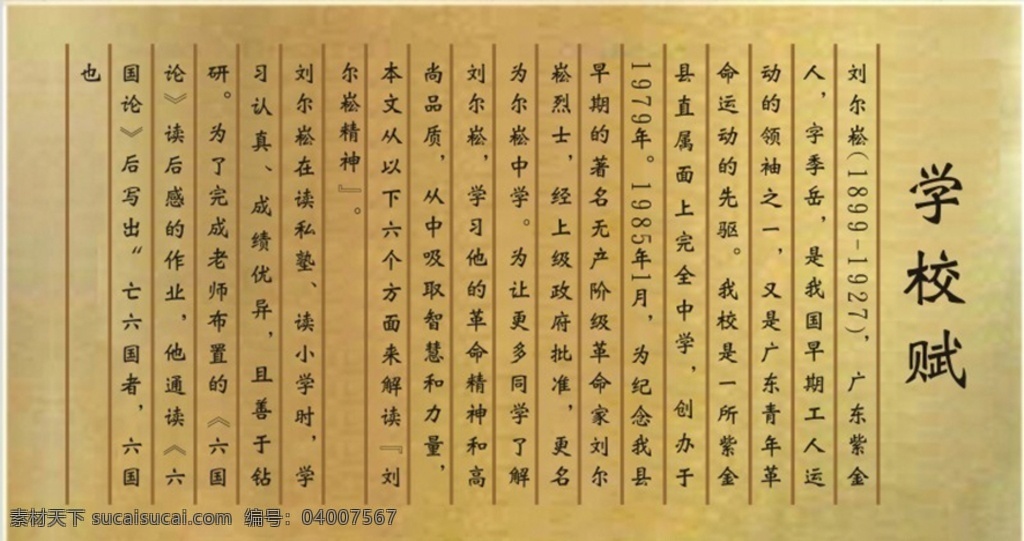 学校赋
刘尔崧(1899-1927)，广东紫金
人，字季岳，是我国早期工人运
动的领袖之一，又是广东青年革
命运动的先驱。我校是一所紫金
县直属面上完全中学，创办于
1979年。1985年1月，为纪念我县
早期的著名无产阶级革命家刘尔
崧烈士，经上级政府批准，更名
为尔崧中学。为让更多同学了解
刘尔崧，学习他的革命精神和高
尚品质，从中吸取智慧和力量，
本文从以下六个方面来解读『刘
尔崧精神』。
刘尔崧在读私塾、读小学时，学
习认真、成绩优异，且善于钻
研。为了完成老师布置的《六国
论》读后感的作业，他通读《六
国论》后写出“亡六国者，六国
也
素材天下 sucaisucai.com 编号：04007567